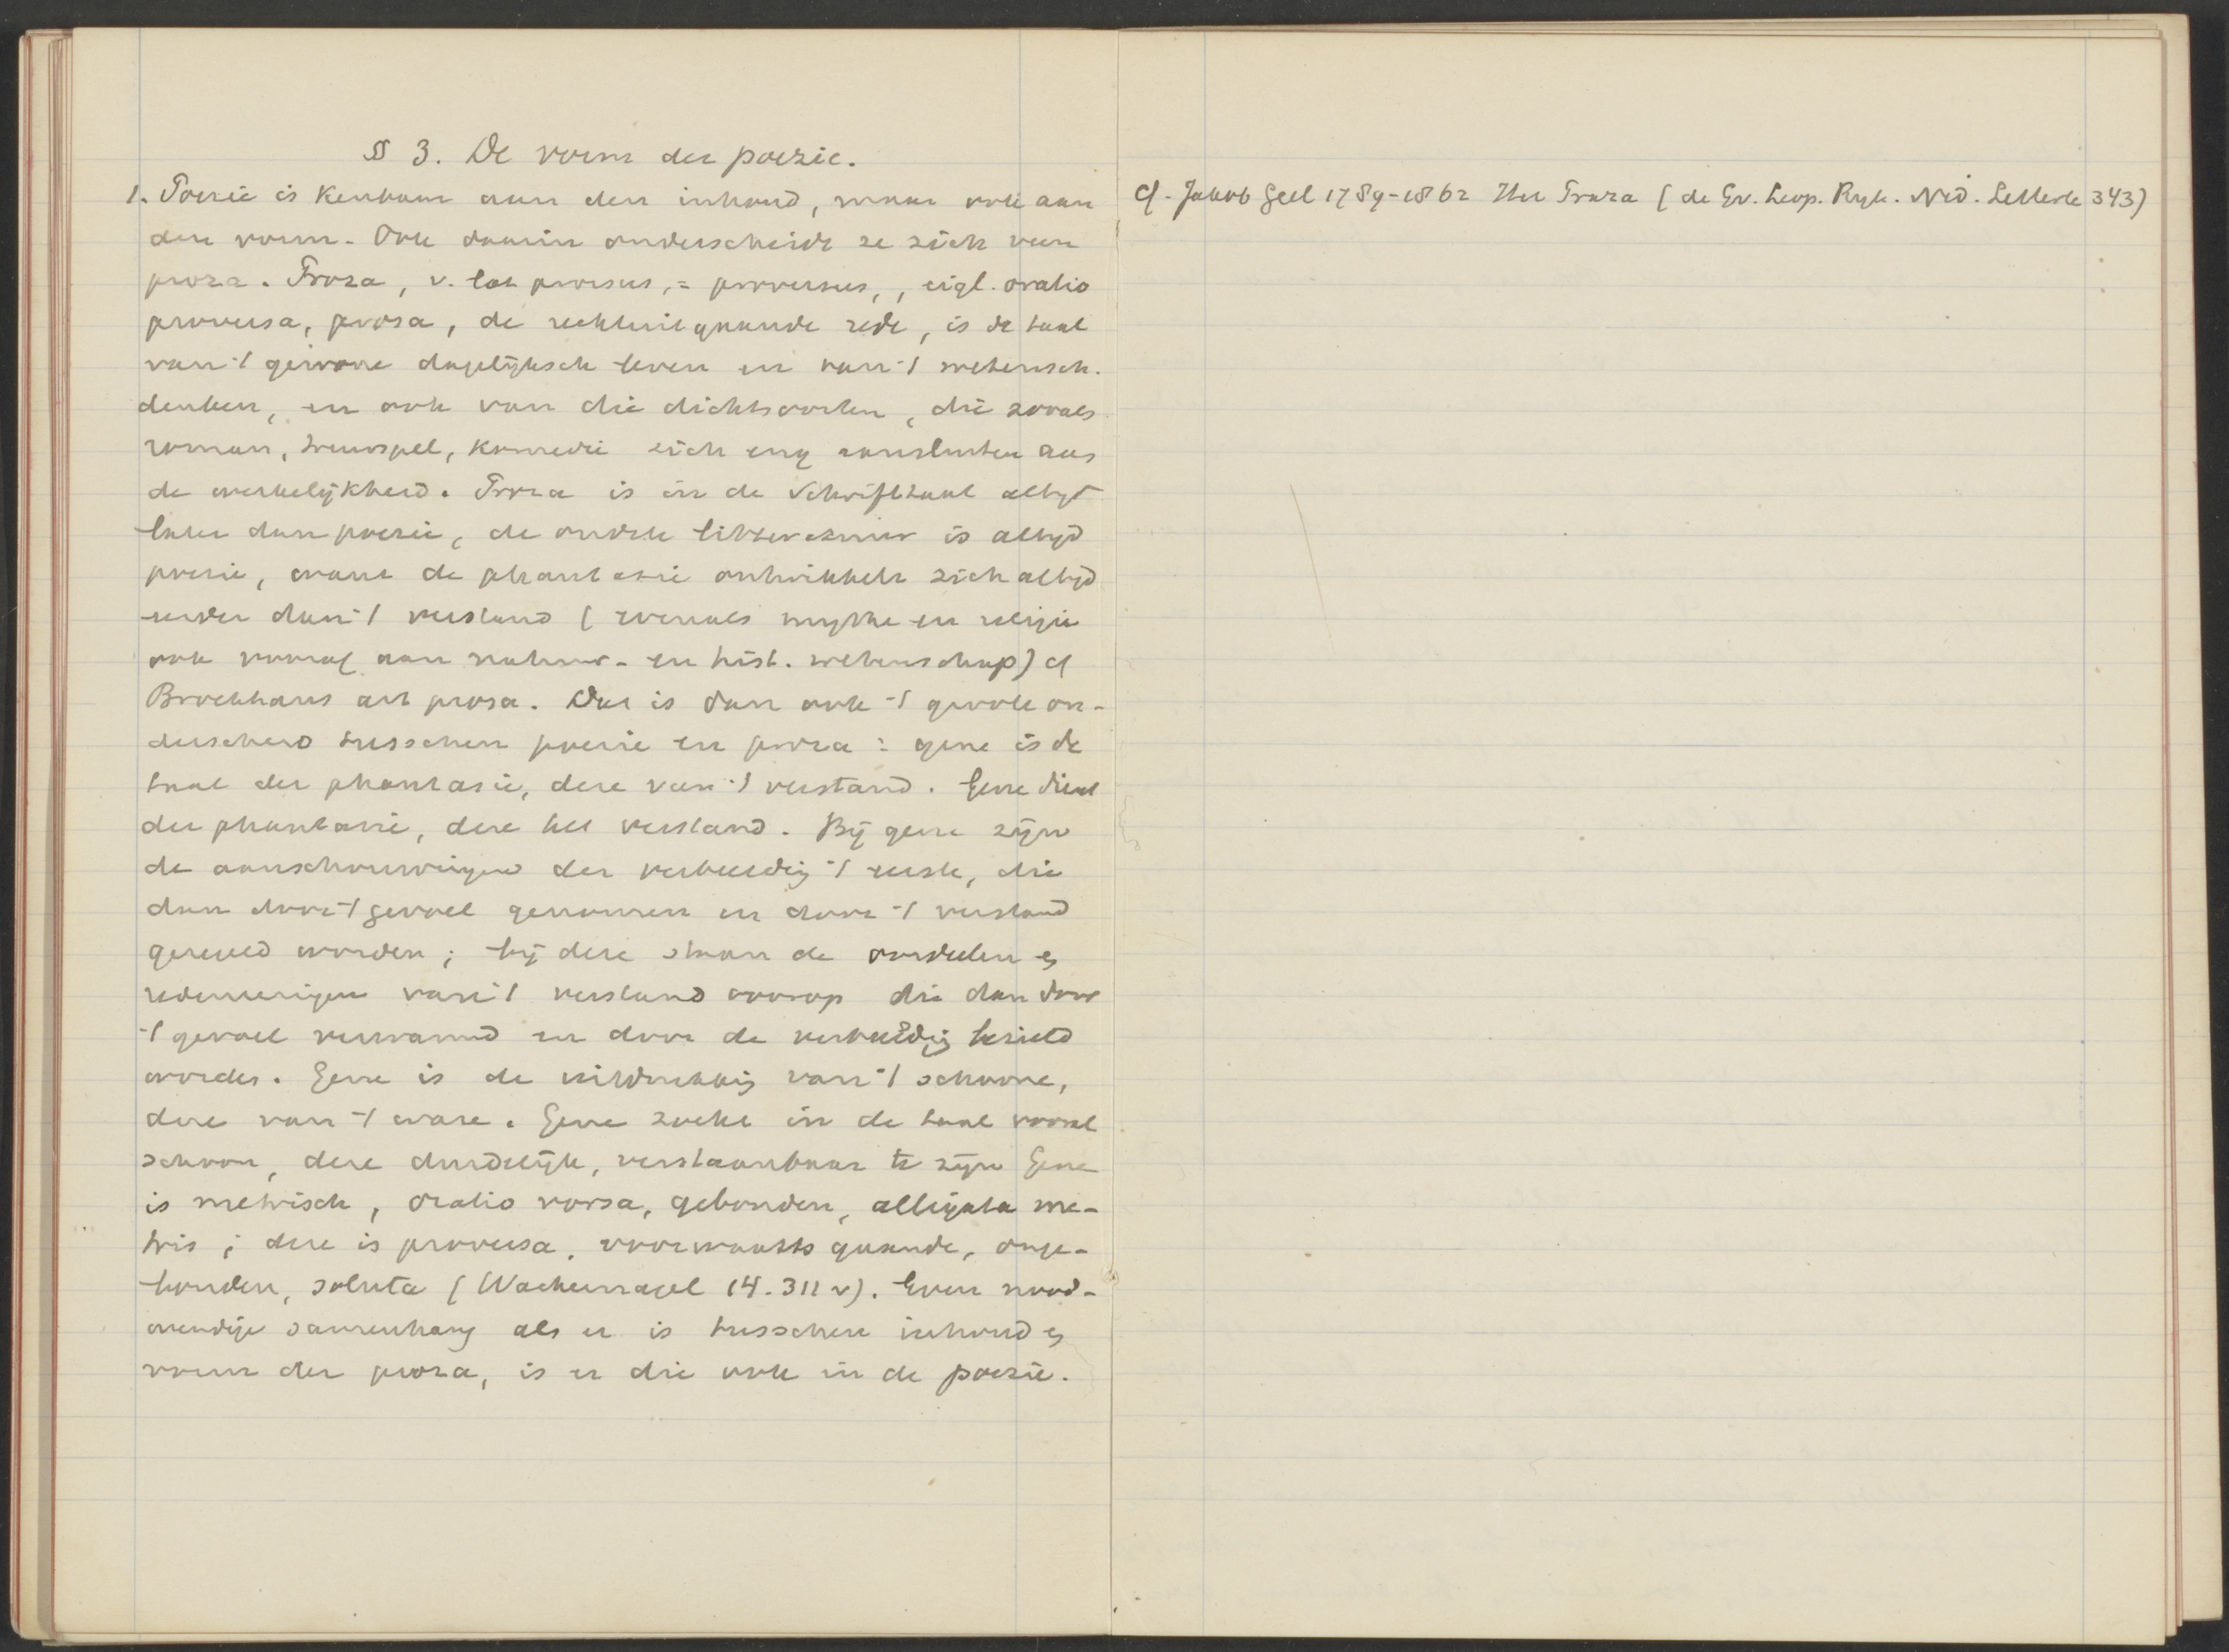 § 3. De vorm der poezie.
1. Poezie is kenbaar aan den inhoud, maar ook aan
den vorm. Ook daarin onderscheidt ze zich van
proza. Proza, v. lat prorsus, = proversus, , eigl. oratio
proversa, prosa, de rechtuitgaande rede, is de taal
van 't gewone dagelijksch leven en van 't wetensch.
denken, en ook van die dichtsoorten, die zooals
roman, treurspel, komedie zich eng aansluiten aan
de werkelijkheid. Proza is in de Schrifttaal altijd
later dan poezie, de oudste litteratuur is altijd
poezie, want de phantasie ontwikkelt zich altijd
eerder dan 't verstand (evenals mythe en religie
ook vooraf aan natuur- en hist. wetenschap) cf
Brockhaus art prosa. Dat is dan ook 't groote on-
derscheid tusschen poezie en proza: gene is de
taal der phantasie, deze van 't verstand. Gene dient
der phantasie, deze het verstand. Bij gene zijn
de aanschouwingen der verbeeldig 't eerste, die
dan door 't gevoel genomen en door 't verstand
geregeld worden; bij deze staan de oordeelen en
redeneeringen van 't verstand voorop die dan door
't gevoel verwarmd en door de verbeeldig bezield
worden. Gene is de uitdrukkig van 't schoone,
deze van 't ware. Gene zoekt in de taal vooral
schoon, deze duidelijk, verstaanbaar te zijn Gene
is metrisch, oratio vorsa, gebonden, alligata me-
tris; deze is proversa, voorwaarts gaande, onge-
bonden, soluta (Wackernagel 14. 311 v). Even nood-
wendige samenhang als er is tusschen inhoud en
vorm der proza, is er die ook in de poezie.
cf. Jakob Geel 1789-1862 Het Proza (de Gr. Leop. Rijk. Ned. Letterk 343)